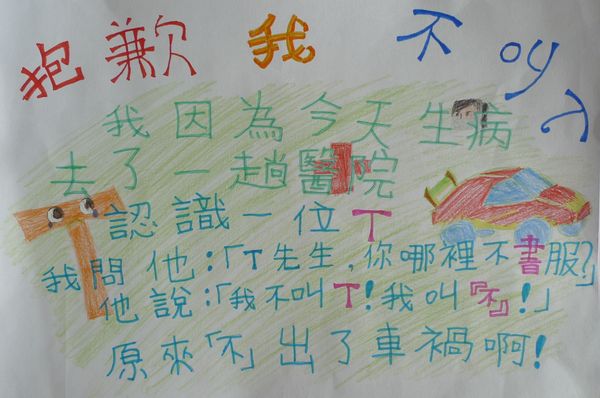 抱歉我不叫T
我因為今天生病
去了一趟醫院
認識一位T
我問他:「T先生,你哪裡不書服?」
他說:「我不叫T!我叫『不』!」
原來「不」出了車禍啊!